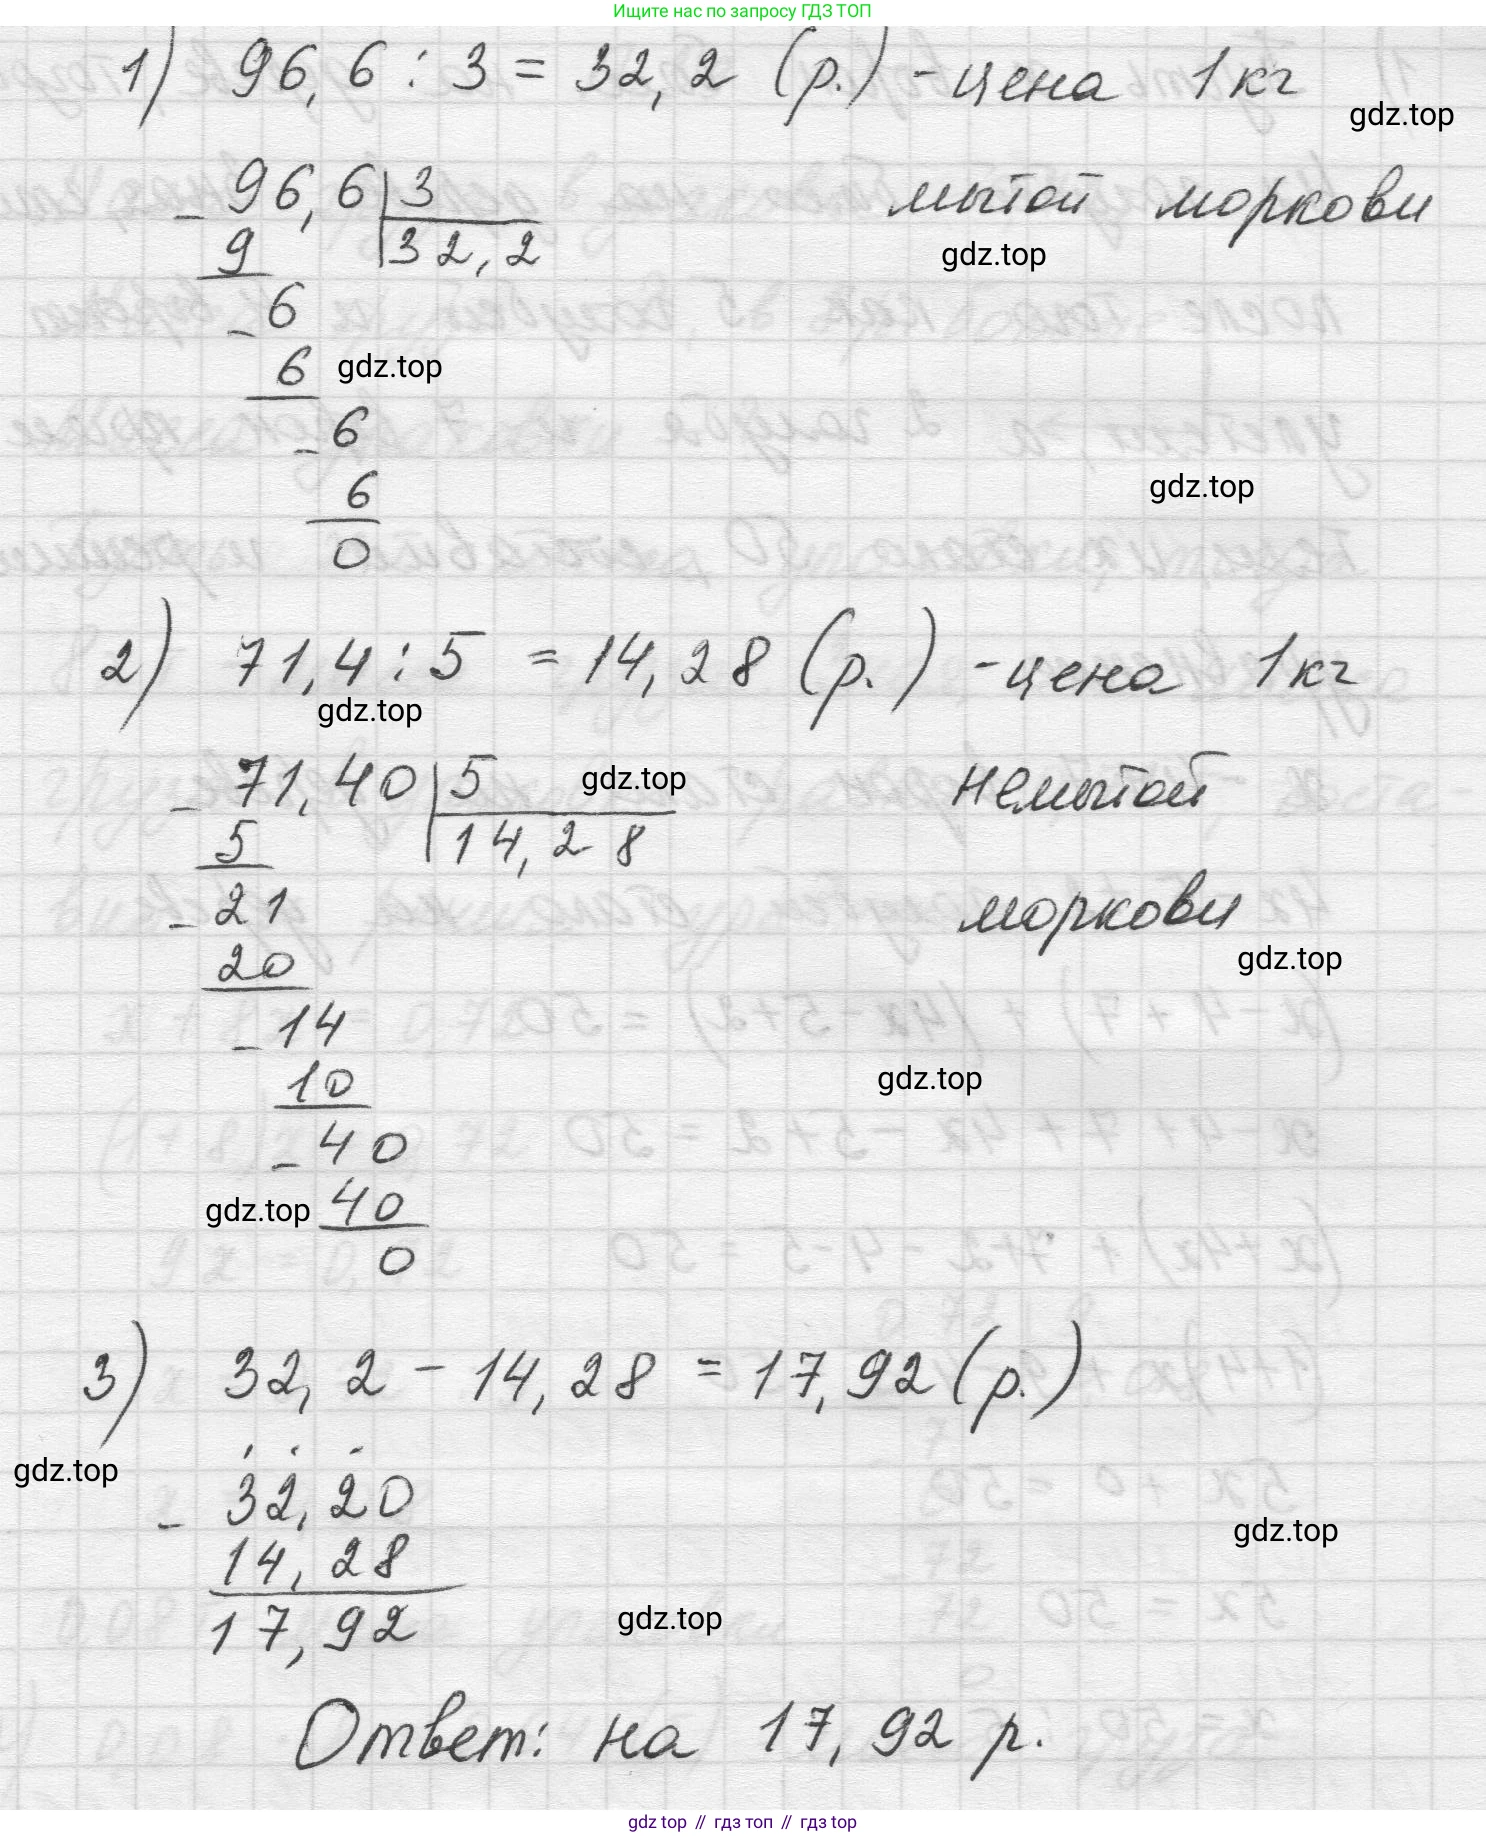 Ищите нас по запросу ГДЗ ТОП
1) 96,6 : 3 = 32,2 (р.) - цена 1 кг
gdz.top
96,6 | 3
мытой моркови
- 9 | 32,2
gdz.top
- 6
6
gdz.top
- 6
6
gdz.top
0
2) 71,4 : 5 = 14,28 (р.) - цена 1 кг
gdz.top
- 71,40 | 5
gdz.top
немытой
5 | 14,28
- 21
моркови
20
gdz.top
- 14
10
gdz.top
- 40
40
gdz.top
0
3) 32,2 - 14,28 = 17,92 (р.)
gdz.top
- 32,20
14,28
gdz.top
17,92
gdz.top
Ответ: на 17,92 р.
gdz top // гдз топ // гдз top